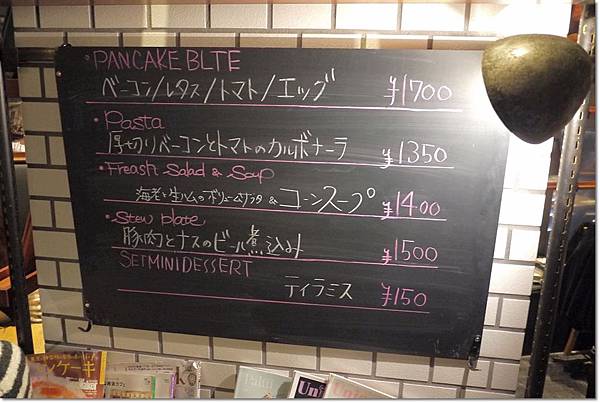 ・PANCAKE BLTE
ベーコン/レタス/トマト/エッグ ¥1700
・Pasta
厚切りベーコンとトマトのカルボナーラ ¥1350
・Freash Salad & Soup
海老と生ハムのボリュームサラダ & コーンスープ ¥1400
・Stew plate
豚肉とナスのビール煮込み ¥1500
SET MINI DESSERT
ティラミス ¥150
ンケーキ
Uni
Uni